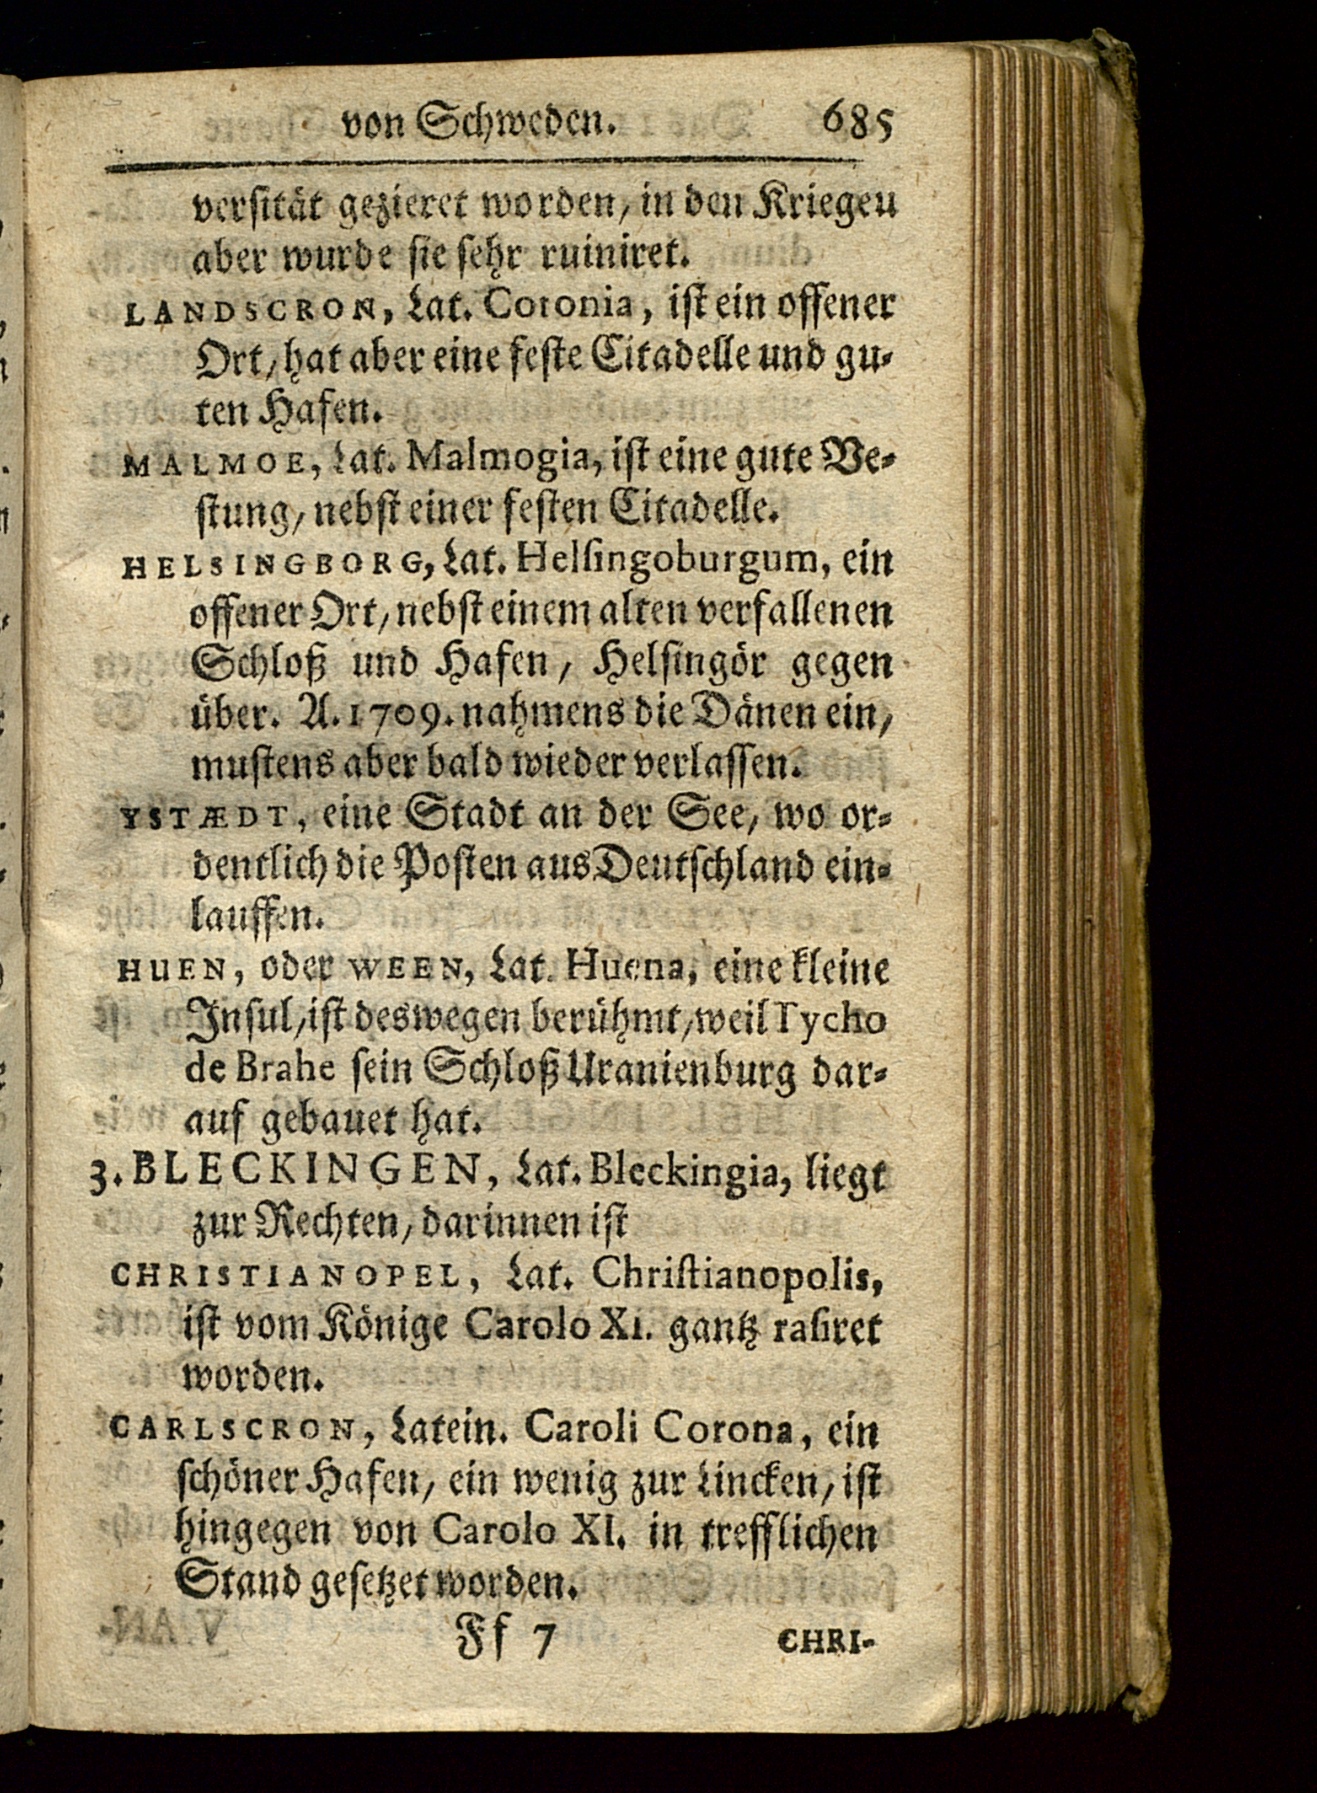 von Schweden. 685
versität gezieret worden, in den Kriegen
aber wurde sie sehr ruiniret.
LANDSCRON, Lat. Coronia, ist ein offener
Ort, hat aber eine feste Citadelle und gu-
ten Hafen.
MALMOE, Lat. Malmogia, ist eine gute Ve-
stung, nebst einer festen Citadelle.
HELSINGBORG, Lat. Helsingoburgum, ein
offener Ort, nebst einem alten verfallenen
Schloß und Hafen, Helsingör gegen
über. A. 1709. nahmens die Dänen ein,
mustens aber bald wieder verlassen.
YSTÆDT, eine Stadt an der See, wo or-
dentlich die Posten aus Deutschland ein-
lauffen.
HUEN, oder WEEN, Lat. Huena, eine kleine
Insul, ist deswegen berühmt, weil Tycho
de Brahe sein Schloß Uranienburg dar-
auf gebauet hat.
3. BLECKINGEN, Lat. Bleckingia, liegt
zur Rechten, darinnen ist
CHRISTIANOPEL, Lat. Christianopolis,
ist vom Könige Carolo XI. gantz rasiret
worden.
CARLSCRON, Latein. Caroli Corona, ein
schöner Hafen, ein wenig zur Lincken, ist
hingegen von Carolo XI. in trefflichen
Stand gesetzet worden.
Ff 7 CHRI-